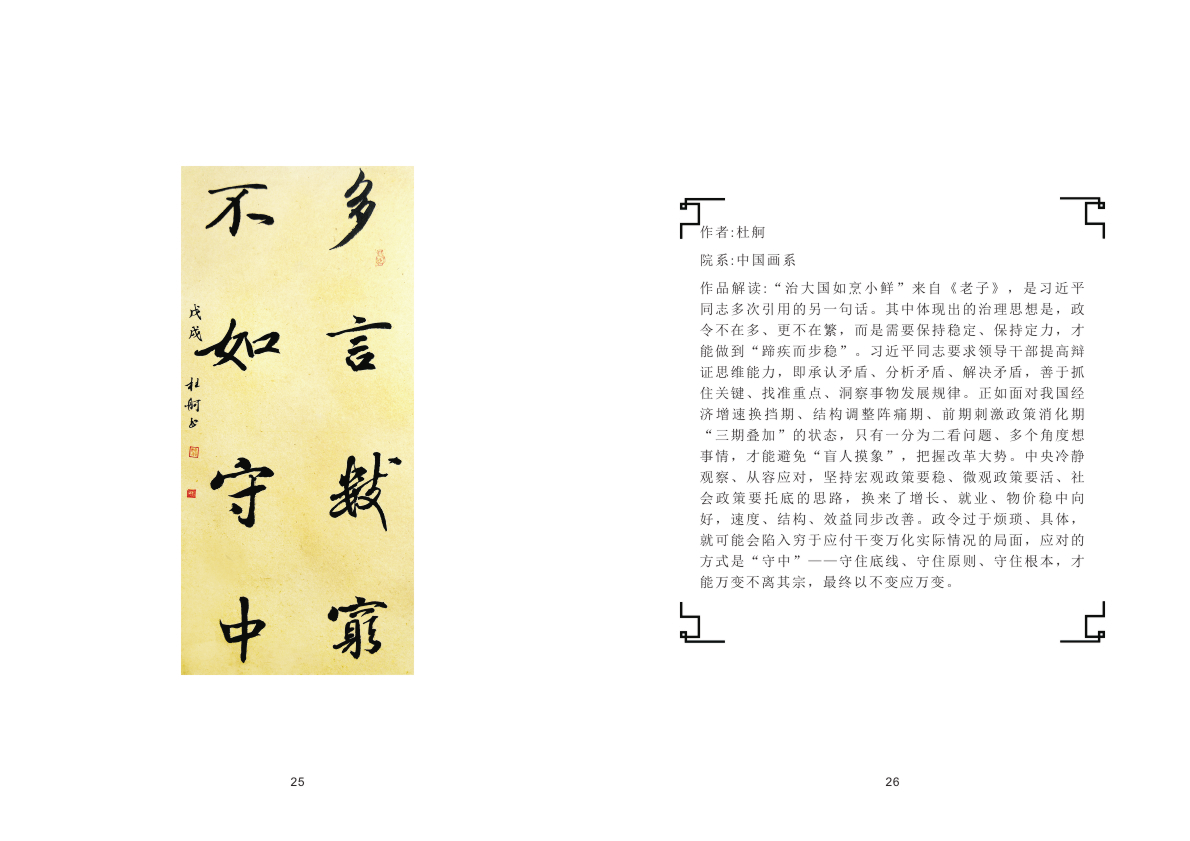 多言数窮
不如守中
戊戌
杜舸书
25
作者:杜舸
院系:中国画系
作品解读:“治大国如烹小鲜”来自《老子》，是习近平
同志多次引用的另一句话。其中体现出的治理思想是，政
令不在多、更不在繁，而是需要保持稳定、保持定力，才
能做到“蹄疾而步稳”。习近平同志要求领导干部提高辩
证思维能力，即承认矛盾、分析矛盾、解决矛盾，善于抓
住关键、找准重点、洞察事物发展规律。正如面对我国经
济增速换挡期、结构调整阵痛期、前期刺激政策消化期
“三期叠加”的状态，只有一分为二看问题、多个角度想
事情，才能避免“盲人摸象”，把握改革大势。中央冷静
观察、从容应对，坚持宏观政策要稳、微观政策要活、社
会政策要托底的思路，换来了增长、就业、物价稳中向
好，速度、结构、效益同步改善。政令过于烦琐、具体，
就可能会陷入穷于应付干变万化实际情况的局面，应对的
方式是“守中”——守住底线、守住原则、守住根本，才
能万变不离其宗，最终以不变应万变。
26